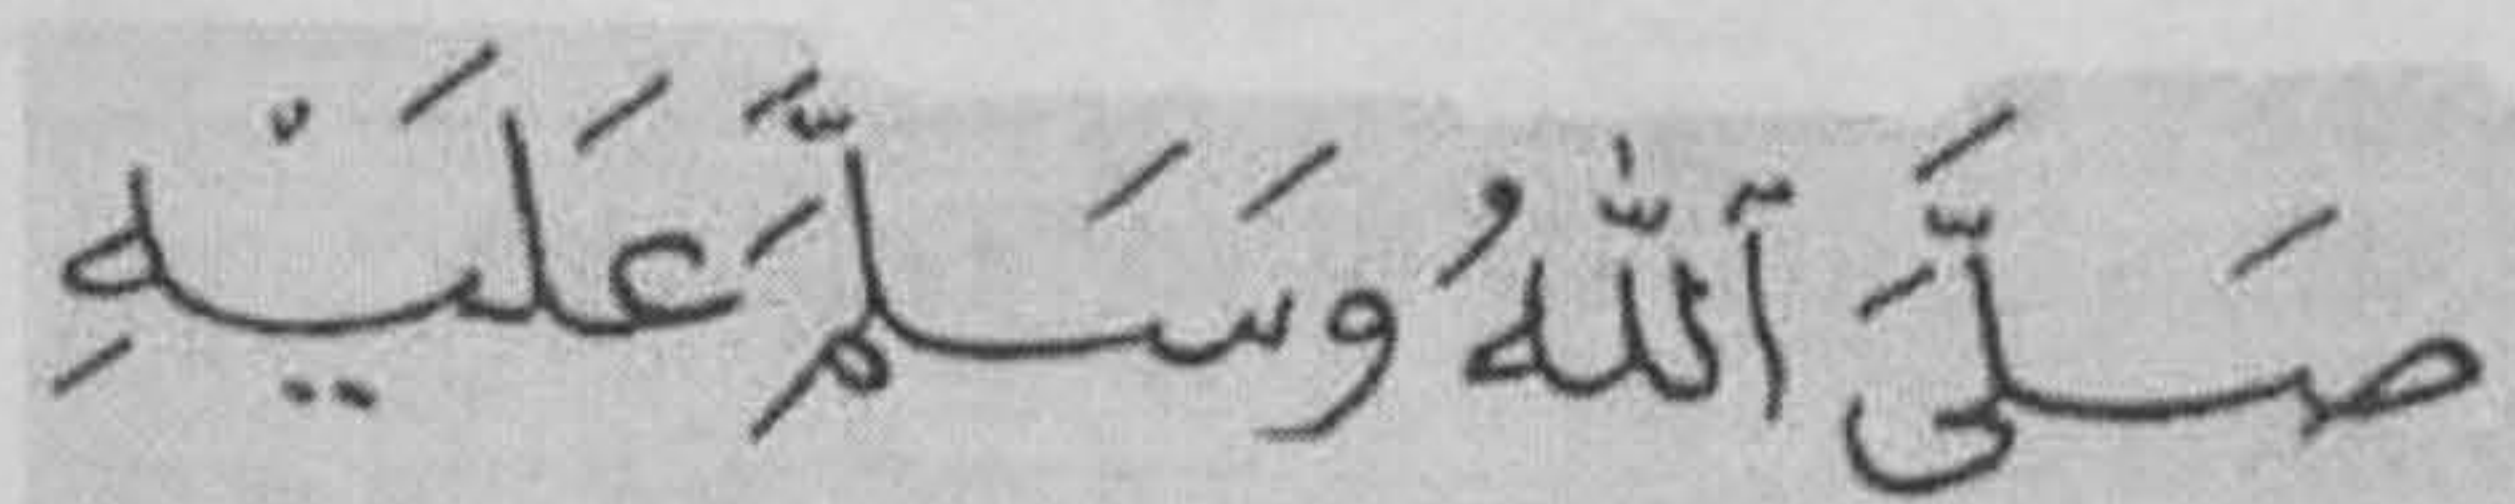 صَلَّى ٱللَّٰهُ وَسَلَّمَ عَلَيْهِ